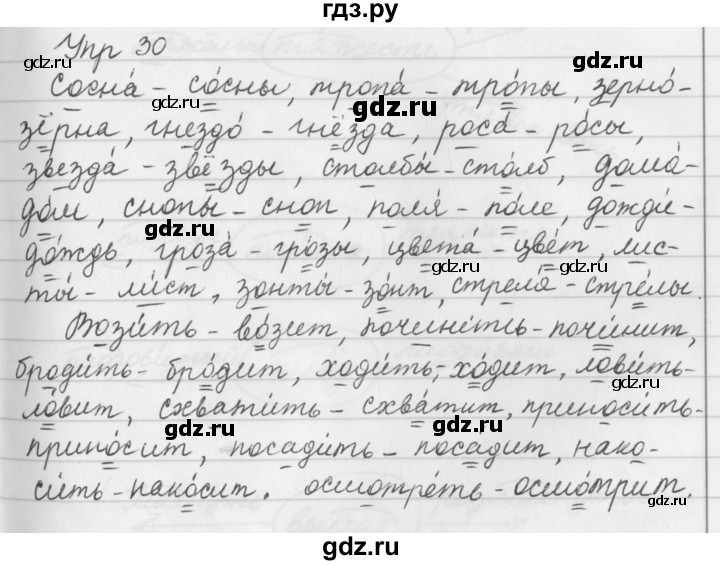 гдз.ру
Упр 30
gdz.ru gdz.ru
Сосна́ – со́сны, тропа́ – тро́пы, зерно́-
gdz.ru
зёрна, гнездо́ – гнёзда, роса́ – ро́сы,
gdz.ru gdz.ru
звезда́ – звёзды, столбы́ – сто́лб, дома́-
до́м, снопы́ – сноп, поля́ – по́ле, дожди́-
gdz.ru
до́ждь, гроза́ – гро́зы, цвета́ – цве́т, лис-
gdz.ru gdz.ru
ты́ – ли́ст, зонты́ – зо́нт, стрела́ – стре́лы.
Вози́ть – во́зит, починить – почи́нит,
gdz.ru
броди́ть – бро́дит, ходи́ть, – хо́дит, лови́ть-
gdz.ru gdz.ru
ло́вит, схвати́ть – схва́тит, приноси́ть-
gdz.ru
прино́сит, посади́ть – посадит, нако-
си́ть – нако́сит. осмотре́ть – осмо́трит.
gdz.ru gdz.ru
gdz.ru